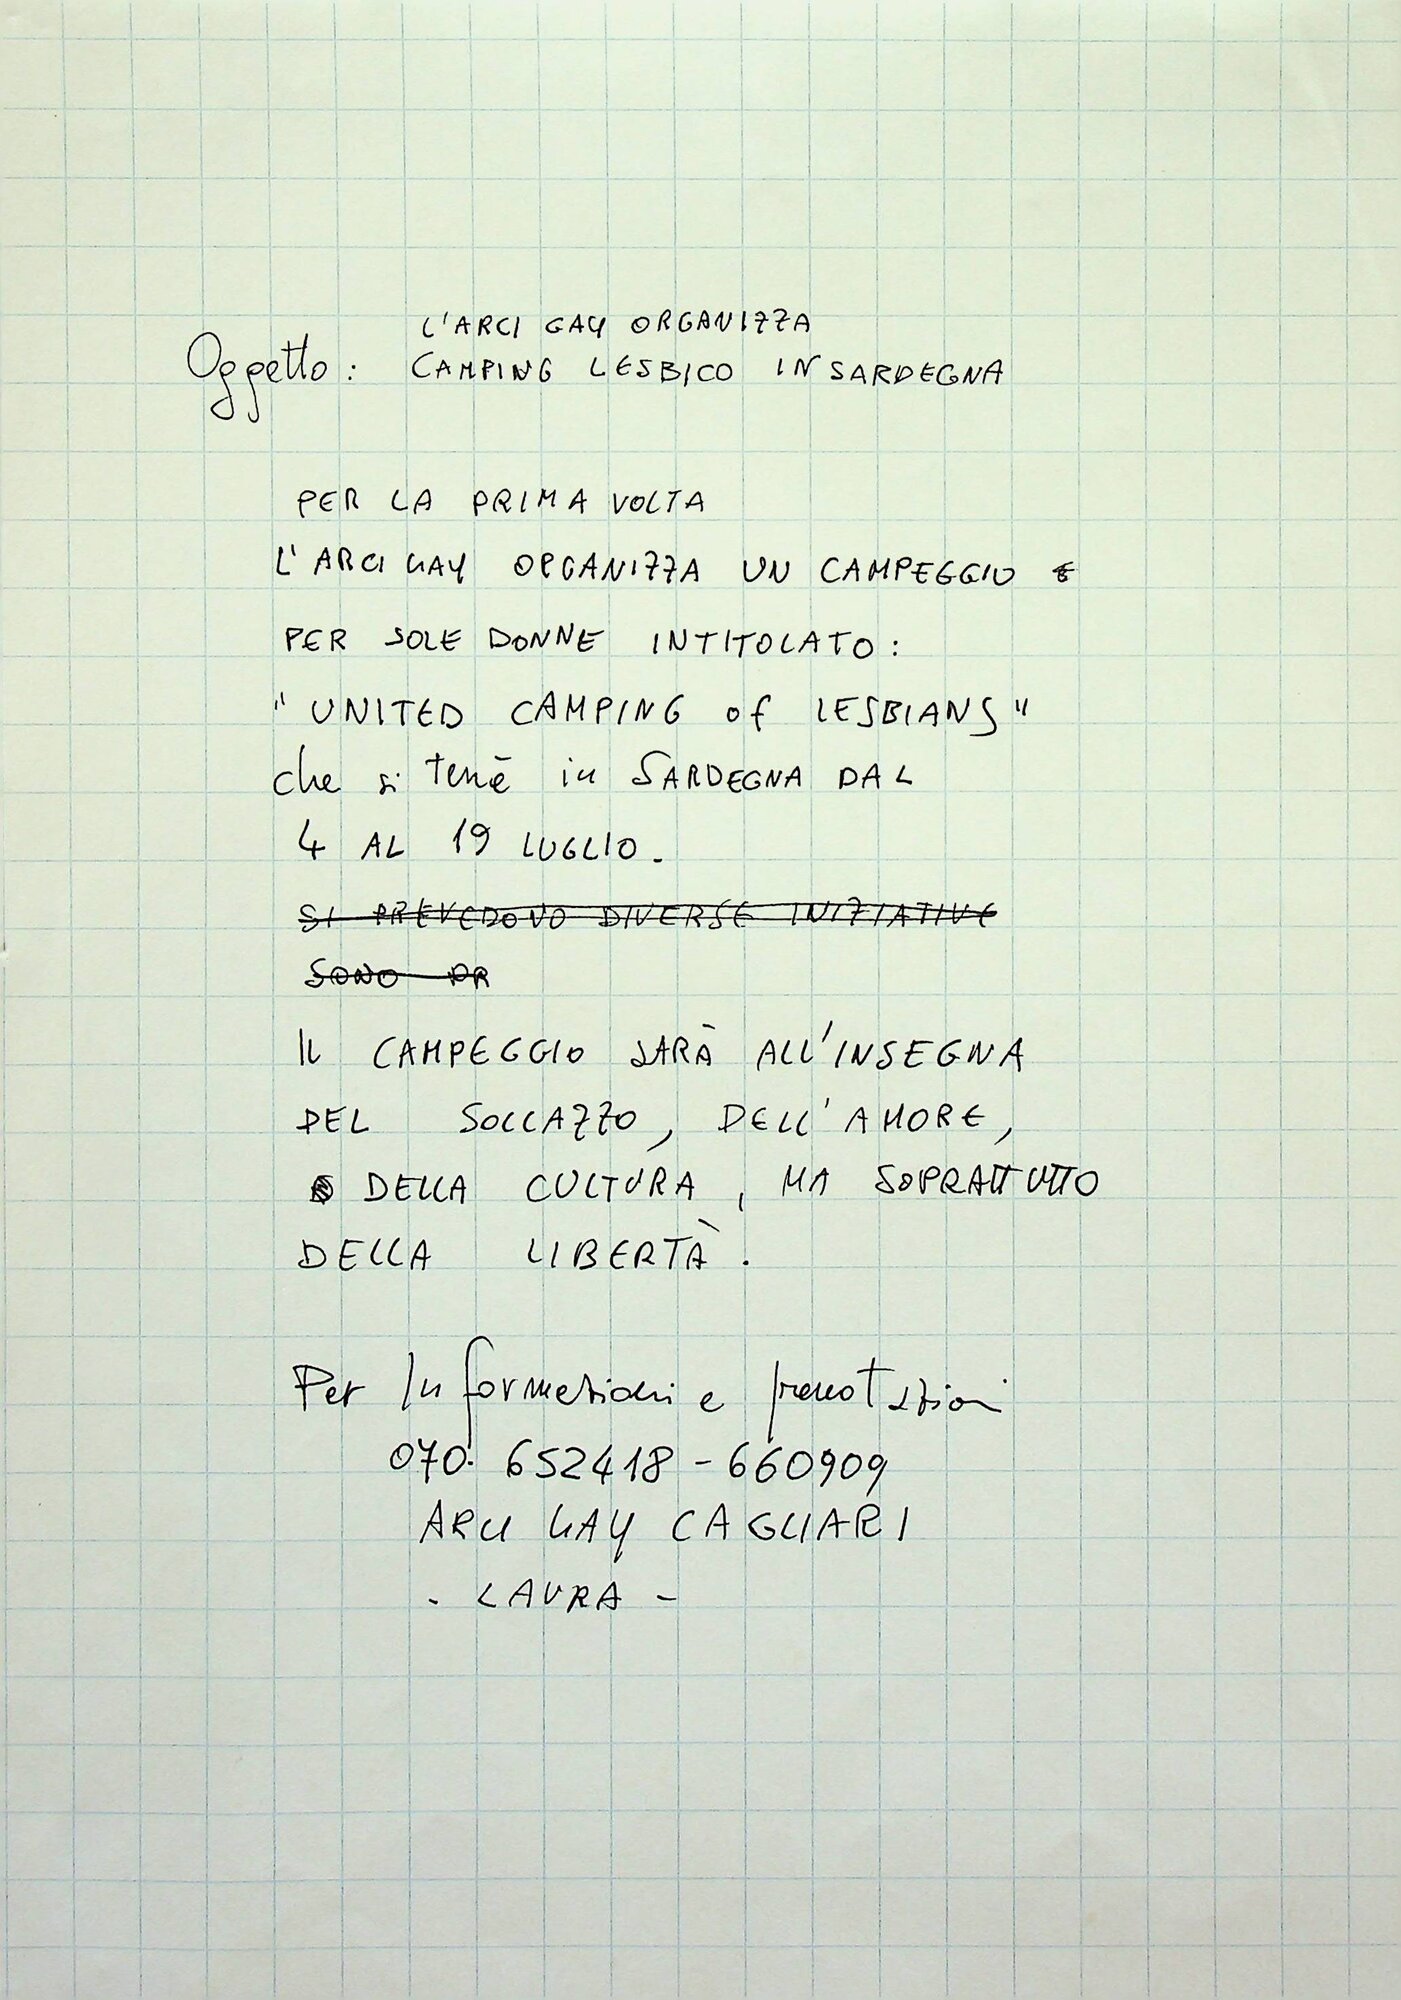 L'ARCI GAY ORGANIZZA
Oggetto: CAMPING LESBICO IN SARDEGNA
PER LA PRIMA VOLTA
L'ARCI GAY ORGANIZZA UN CAMPEGGIO
PER SOLE DONNE INTITOLATO:
"UNITED CAMPING of LESBIANS"
che si terrà in SARDEGNA DAL
4 AL 19 LUGLIO.
SI PREVEDONO DIVERSE INIZIATIVE
SONO PR
IL CAMPEGGIO SARÀ ALL'INSEGNA
DEL SOLLAZZO, DELL'AMORE,
DELLA CULTURA, MA SOPRATTUTTO
DELLA LIBERTÀ.
Per Informazioni e prenotazioni
070. 652418 - 660909
ARCI GAY CAGLIARI
- LAURA -